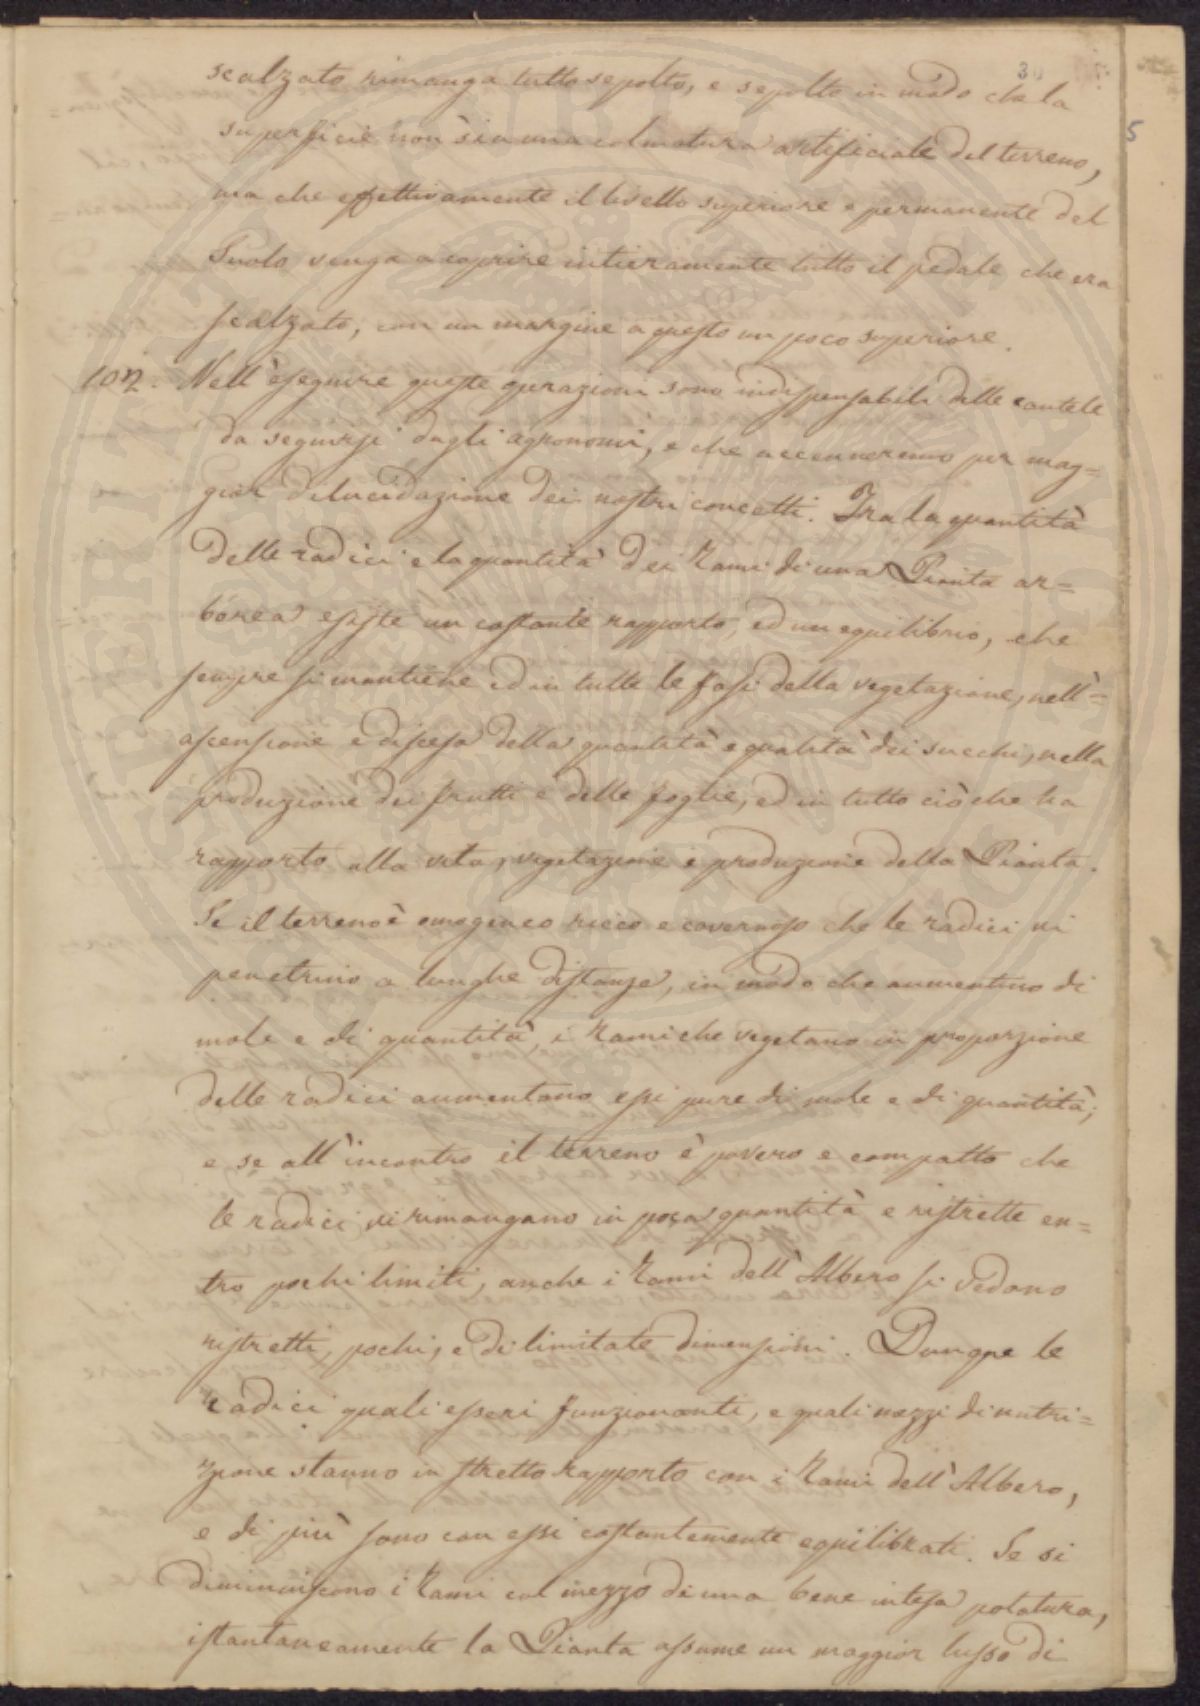 scalzato rimanga tutto sepolto, e sepolto in modo che la
superficie non sia una colmatura artificiale del terreno,
ma che effettivamente il livello superiore e permanente del
Suolo venga a coprire intieramente tutto il pedale che era
scalzato, con un margine a questo un poco superiore.
102. Nell'eseguire queste operazioni sono indispensabili delle cautele
da seguirsi dagli agronomi, e che accenneremo per mag=
gior delucidazione dei nostri concetti. Tra la quantità
delle radici e la quantità dei Rami di una Pianta ar=
borea esiste un costante rapporto, ed un equilibrio, che
sempre si mantiene ed in tutte le fasi della vegetazione, nell'=
ascensione e discesa della quantità e qualità dei succhi, nella
produzione dei frutti e delle foglie, ed in tutto ciò che ha
rapporto alla vita, vegetazione e produzione della Pianta.
Se il terreno è omogeneo ricco e cavernoso che le radici vi
penetrino a lunghe distanze, in modo che aumentino di
mole e di quantità, i Rami che vegetano in proporzione
delle radici aumentano essi pure di mole e di quantità;
e se all'incontro il terreno è povero e compatto che
le radici vi rimangano in poca quantità e ristrette en=
tro pochi limiti, anche i Rami dell'Albero si vedono
ristretti, pochi, e di limitate dimensioni. Dunque le
radici quali esseri funzionanti, e quali mezzi di nutri=
zione stanno in stretto rapporto con i Rami dell'Albero,
e di più sono con essi costantemente equilibrati. Se si
diminuiscono i Rami col mezzo di una bene intesa potatura,
istantaneamente la Pianta assume un maggior lusso di
5